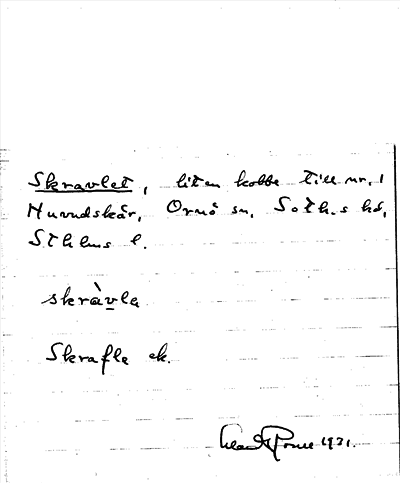 Skravlet, liten kobbe till nr. 1
Huvudskär, Ornö sn, Soth.s hd,
Sthlms l.
skràvla
Skrafle ek.
1931.